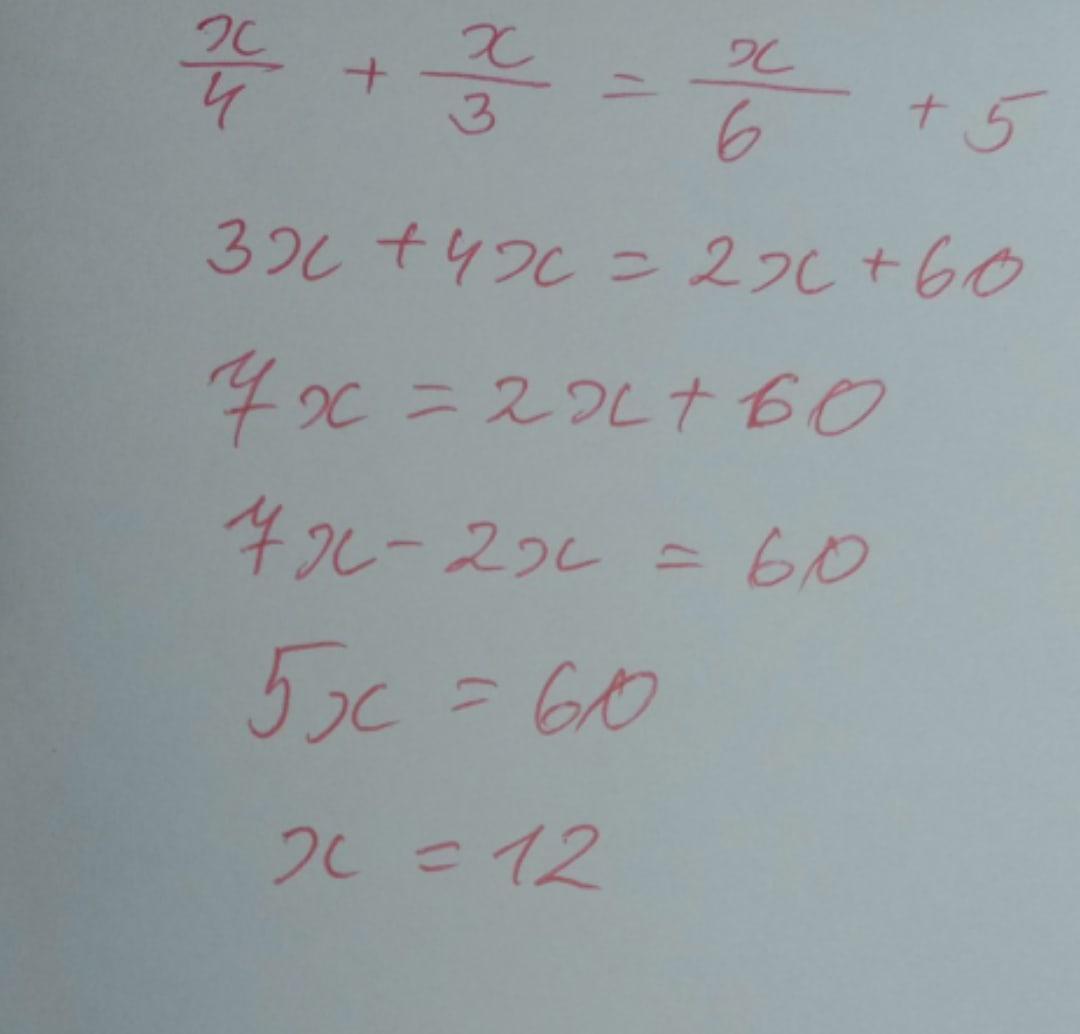 x/4 + x/3 = x/6 + 5
3x + 4x = 2x + 60
7x = 2x + 60
7x - 2x = 60
5x = 60
x = 12